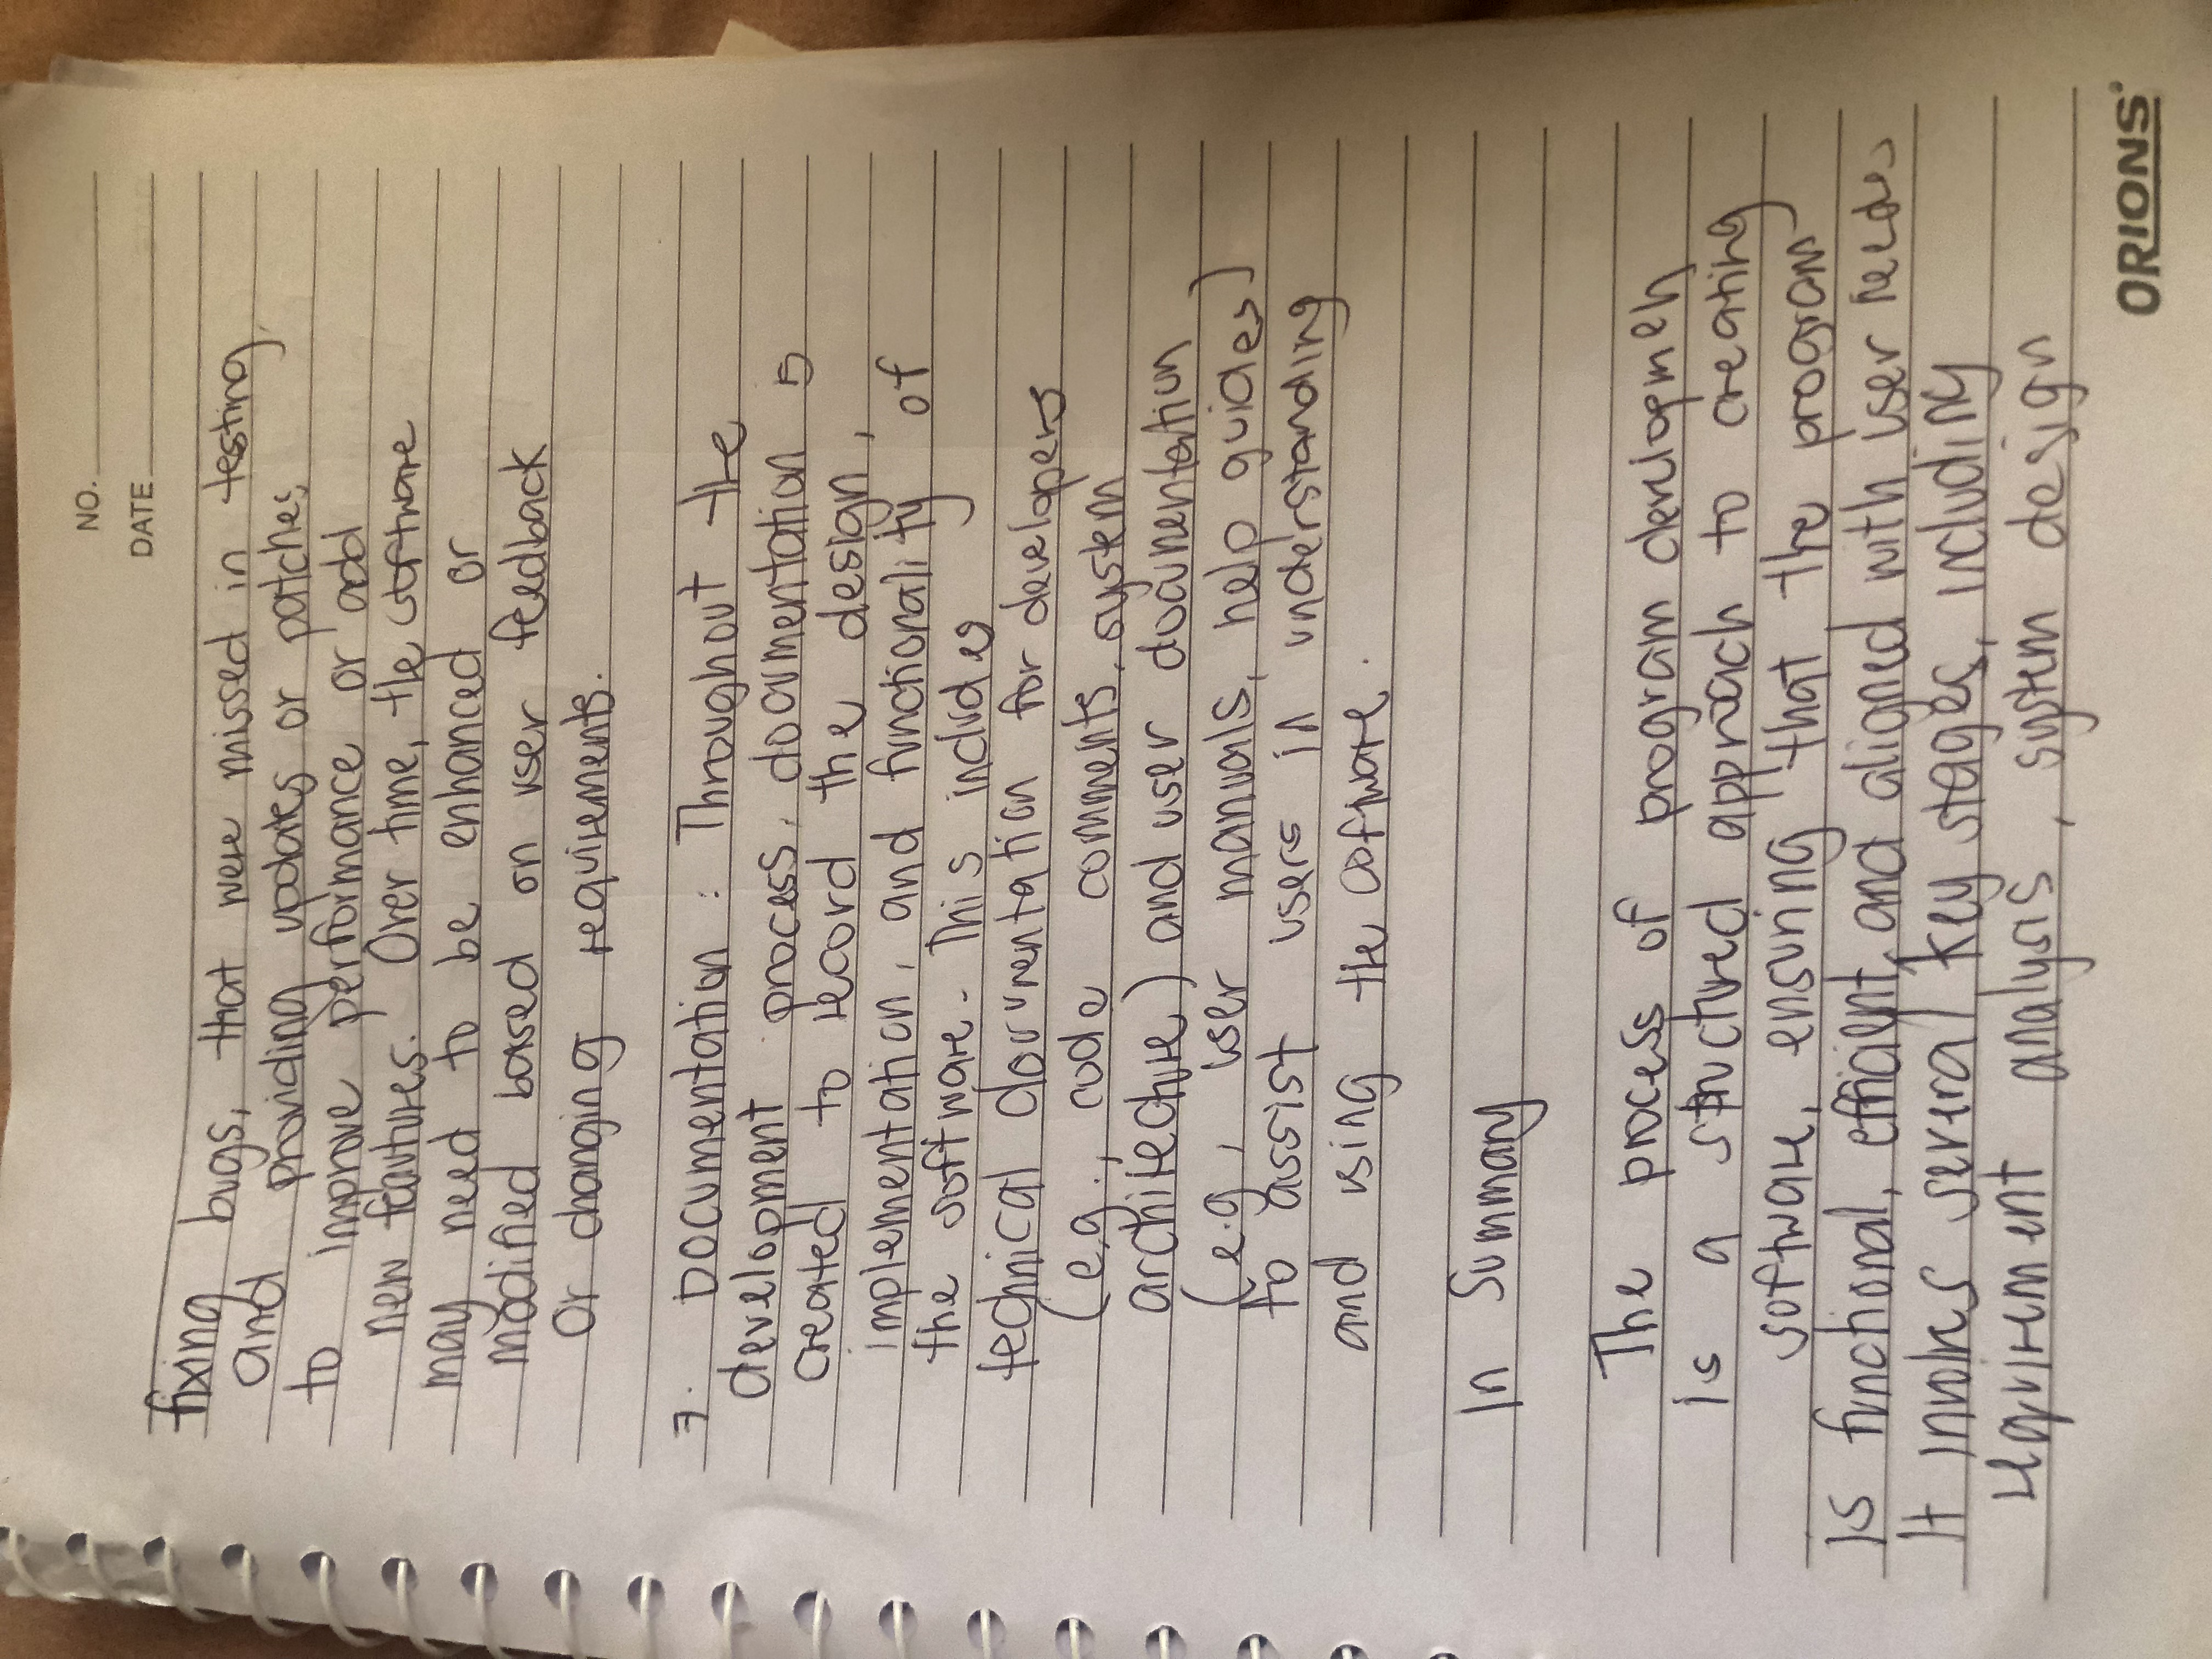 NO.
DATE
fixing bugs, that were missed in testing,
and providing updates or patches
to improve performance or add
new feautures. Over time, the software
may need to be enhanced or
modified based on user feedback
Or changing requirements.
7. Documentation : Throughout the
development process, documentation is
created to record the design,
implementation, and functionality of
the software. This includes
technical documentation for developers
(e.g., code comments, system
architecture) and user documentation
(e.g, user manuals, help guides)
to assist users in understanding
and using the software.
In Summary
The process of program developmen
is a structured approach to creating
software, ensuring that the program
is functional, efficient, and aligned with user needs
It involves several key stages, including
requirement analysis, system design
ORIONS